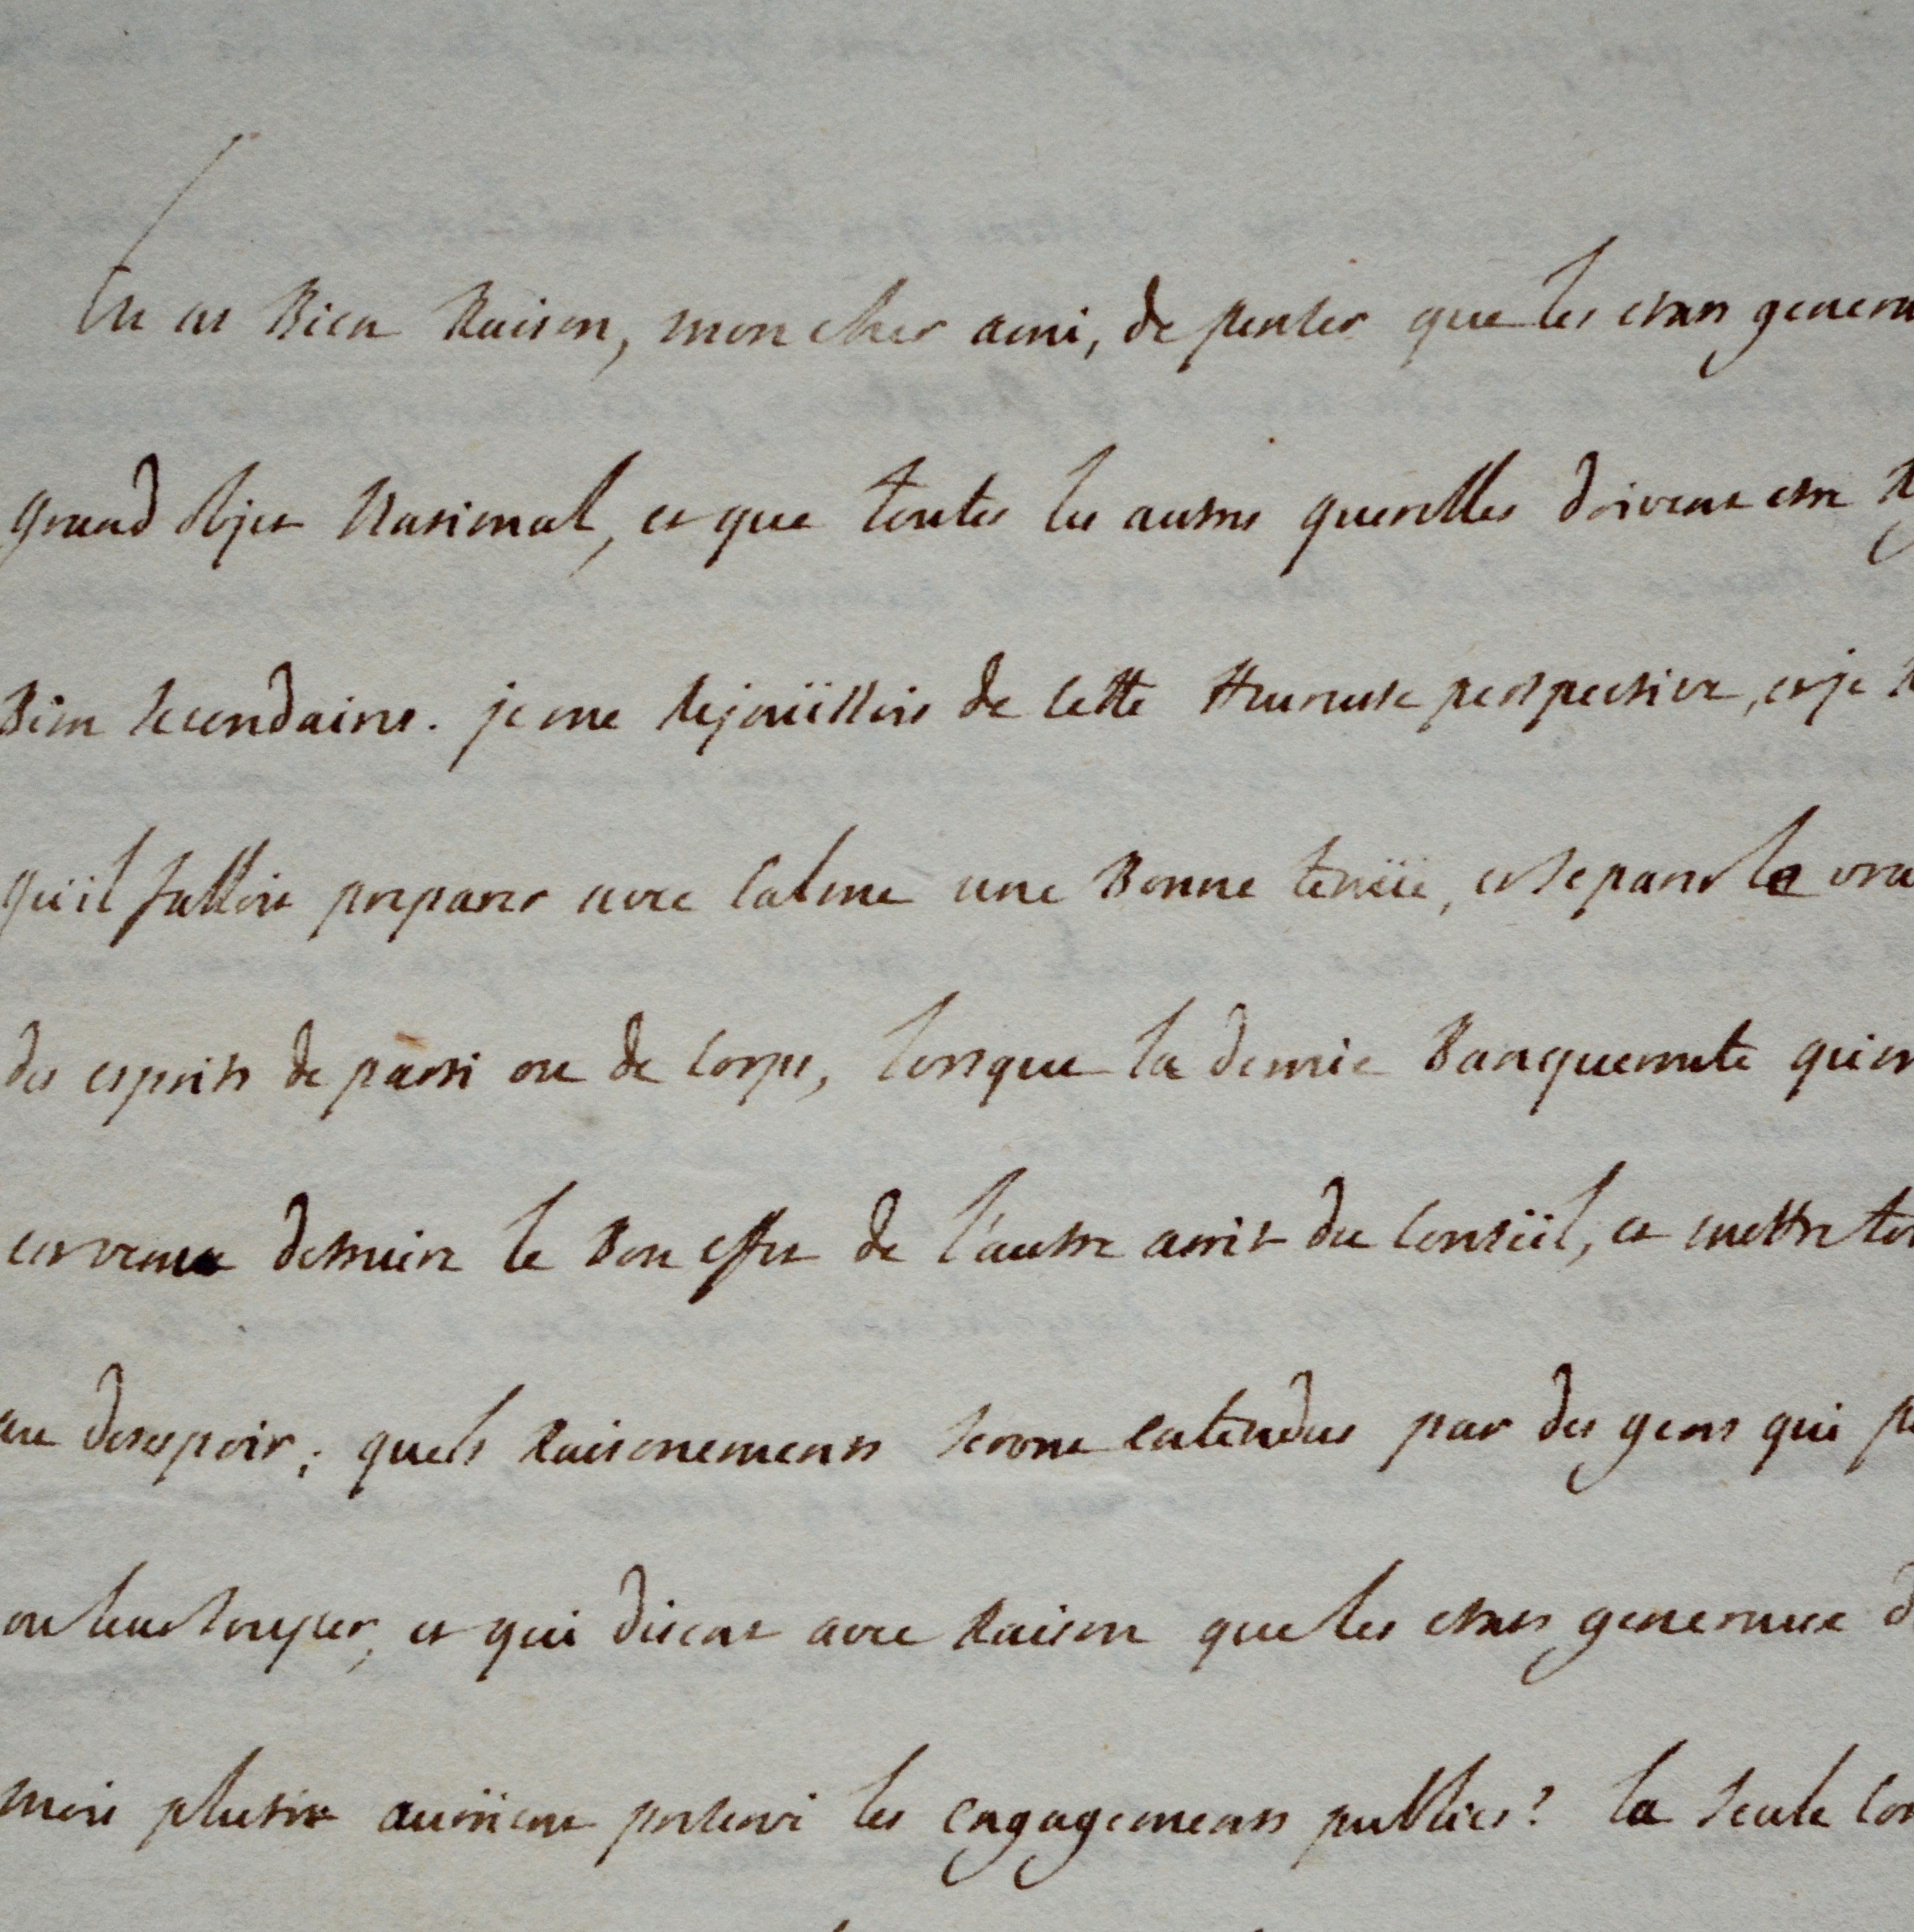 Tu as Bien Raison, mon cher ami, de penser que les etats genera
grand objet National, et que toutes les autres querelles doivent etre
Bien secondaires. je me rejouïssois de cette Heureuse perspective, et je
qu'il falloit preparer avec calme une Bonne tenuë, et separer le vra
des esprits de parti ou de corps, lorsque la demie Banqueroute qui
est venue detruire le Bon effet de l'autre arrit du Conseil, et mettre tou
au desespoir; quels Raisonements seront entendus par des gens qui p
ou leur souper, et qui disent avec Raison que les etats generaux d
mois plustot auroient preservé les engagements publics? la seule con